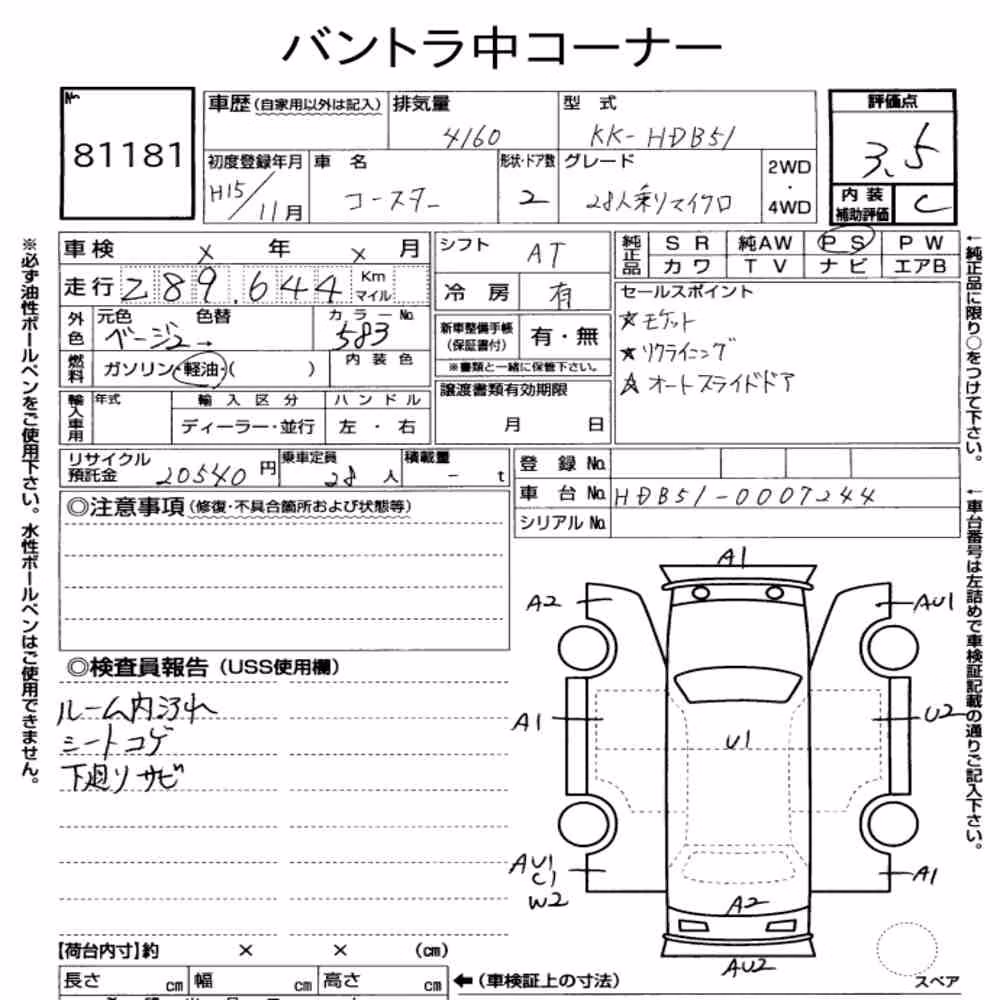 バントラ中コーナー
No.
81181
車歴(自家用以外は記入)
排気量
4160
型 式
KK-HDB51
評価点
3.5
初度登録年月
H15/11月
車 名
コースター
形状・ドア数
2
グレード
28人乗りマイクロ
2WD
・
4WD
内装
補助評価
C
車検 × 年 × 月
シフト
AT
純正品
SR 純AW PS PW
カワ TV ナビ エアB
走行 289.644 Km
マイル
冷 房
有
セールスポイント
★モケット
★リクライニング
★オートスライドドア
外色
元色 色替
ベージュ→
カラーNo.
583
新車整備手帳
(保証書付)
有・無
※書類と一緒に保管下さい。
燃料
ガソリン・軽油・( )
内装色
輸入車用
年式
輸入区分
ディーラー・並行
ハンドル
左・右
譲渡書類有効期限
月 日
リサイクル
預託金
20540円
乗車定員
28人
積載量
- t
登録No.
車台No. HDB51-0007244
シリアルNo.
◎注意事項(修復・不具合箇所および状態等)
◎検査員報告(USS使用欄)
ルーム内汚れ
シートコゲ
下廻りサビ
A1
A2
AU1
A1
U2
U1
AU1
C1
W2
A1
A2
AU2
スペア
【荷台内寸】約 × × (cm)
長さ cm 幅 cm 高さ cm
←(車検証上の寸法)
※必ず油性ボールペンをご使用下さい。水性ボールペンはご使用できません。
←純正品に限り○をつけて下さい。
←車台番号は左詰めで車検証記載の通りご記入下さい。